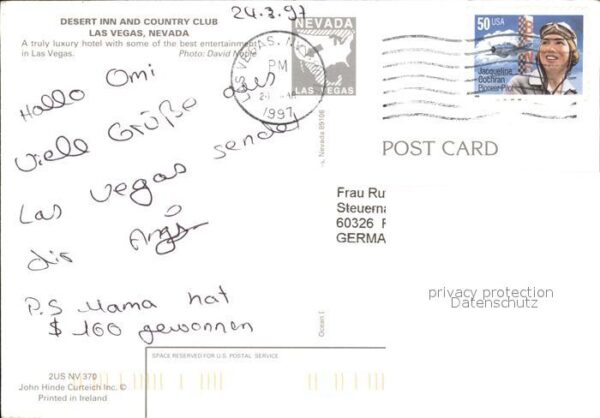 24.3.97
DESERT INN AND COUNTRY CLUB
LAS VEGAS, NEVADA
A truly luxury hotel with some of the best entertainment
in Las Vegas. Photo: David Noble
Hallo Omi
Viele Grüße aus
Las Vegas sendet
dir
P.S Mama hat
$ 160 gewonnen
2US NV 370
John Hinde Curteich Inc. ©
Printed in Ireland
NEVADA
LAS VEGAS
LAS VEGAS, NV
PM
1997
50 USA
Jacqueline
Cochran
Pioneer Pilot
POST CARD
Nevada 89106
Ocean
Frau Ru
Steuerna
60326 F
GERMA
privacy protection
Datenschutz
SPACE RESERVED FOR U.S. POSTAL SERVICE